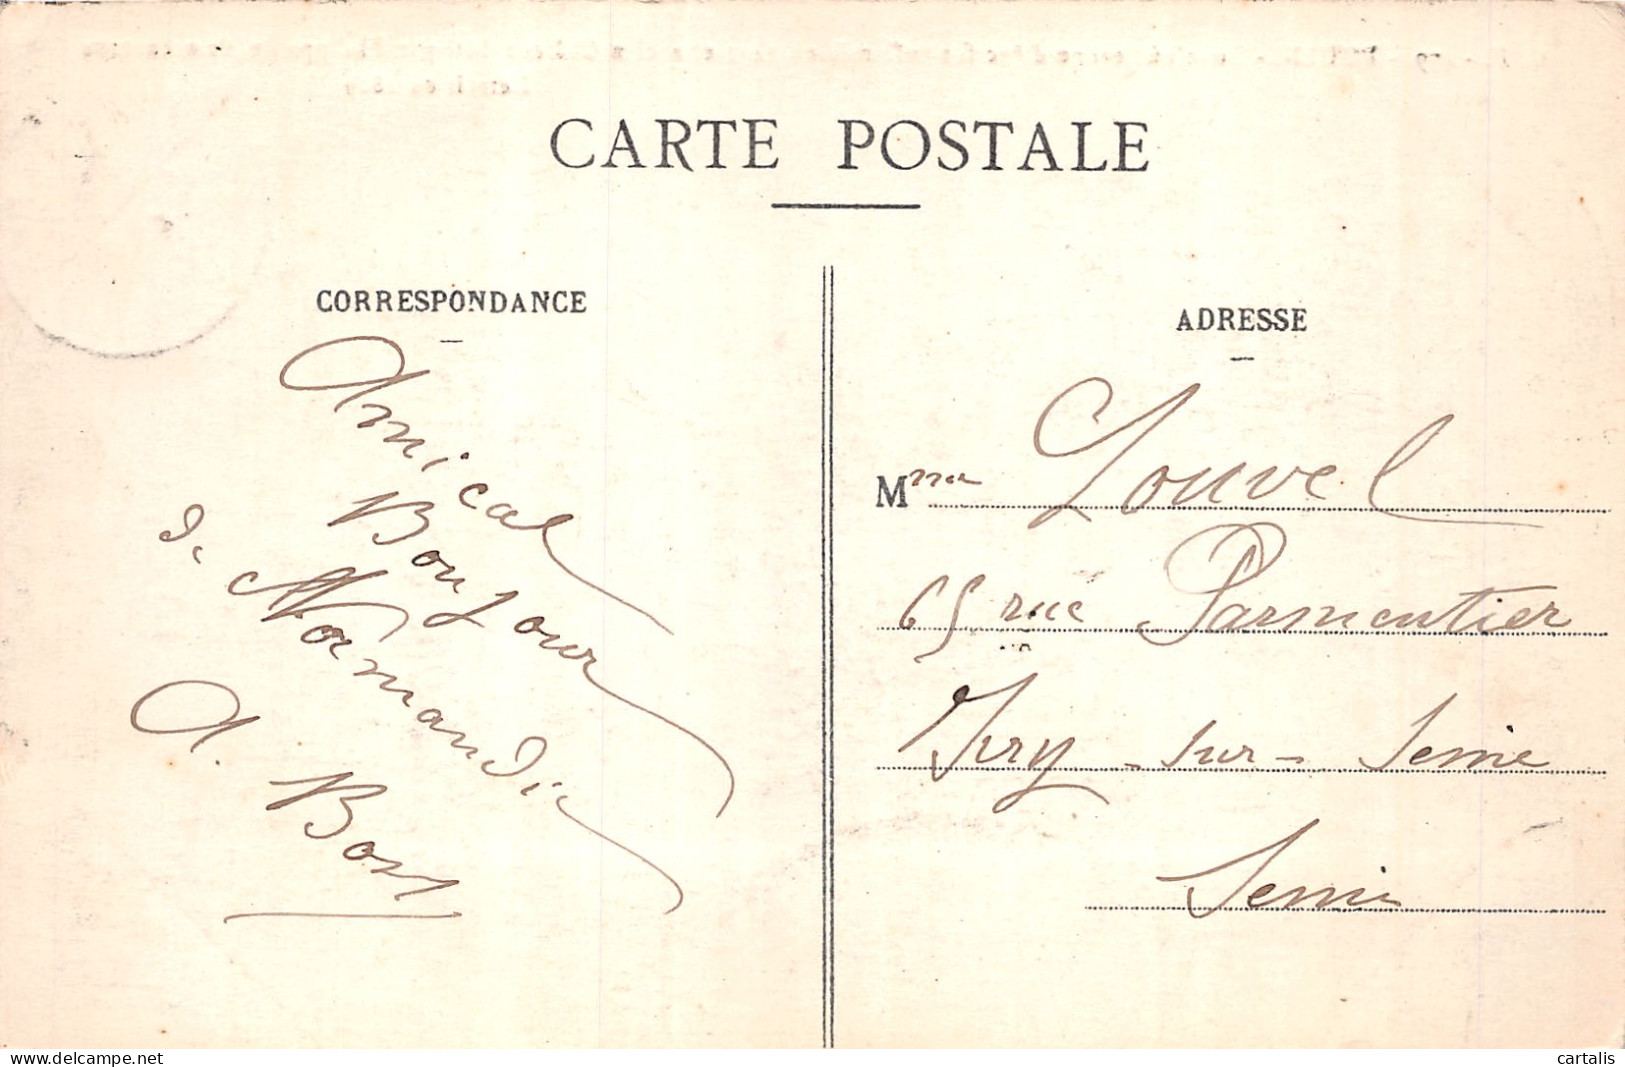 CARTE POSTALE
CORRESPONDANCE
Amical
Bonjour
de Normandie
A. Bost
ADRESSE
Mme Louvel
65 rue Parmentier
Ivry-sur-Seine
Seine
www.delcampe.net
cartalis